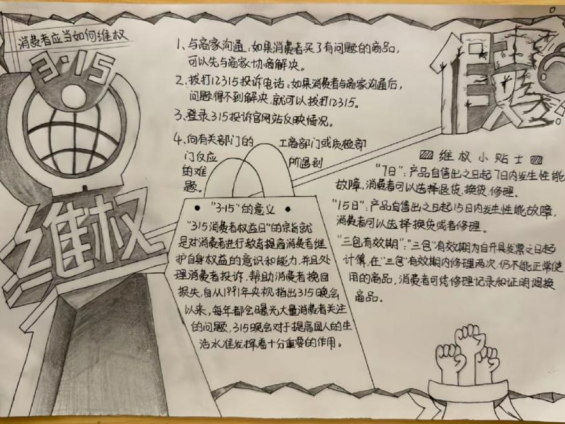 消费者应当如何维权
3·15
维权
1、与商家沟通：如果消费者买了有问题的商品，
可以先与商家协商解决。
2、拨打12315投诉电话：如果消费者与商家沟通后，
问题得不到解决，就可以拨打12315。
3、登录315投诉官网站反映情况。
4、向有关部门的
门反应
的难
题。
工商部门或质检部
所遇到
假
维权小贴士
"7日"：产品自售出之日起7日内发生性能
故障，消费者可以选择退货、换货、修理。
"15日"：产品自售出之日起15日内发生性能故障，
消费者可以选择换货或者修理。
"三包有效期"："三包"有效期为自开具发票之日起
计算，在"三包"有效期内修理两次，仍不能正常使
用的商品，消费者可凭修理记录和证明调换
商品。
"3·15"的意义
"315消费者权益日"的宗旨就
是对消费者进行教育，提高消费者维
护自身权益的意识和能力，并且处
理消费者投诉，帮助消费者挽回
损失，自从1991年央视推出315晚会
以来，每年都会曝光大量消费者关注
的问题，315晚会对于提高国人的生
活水准发挥着十分重要的作用。